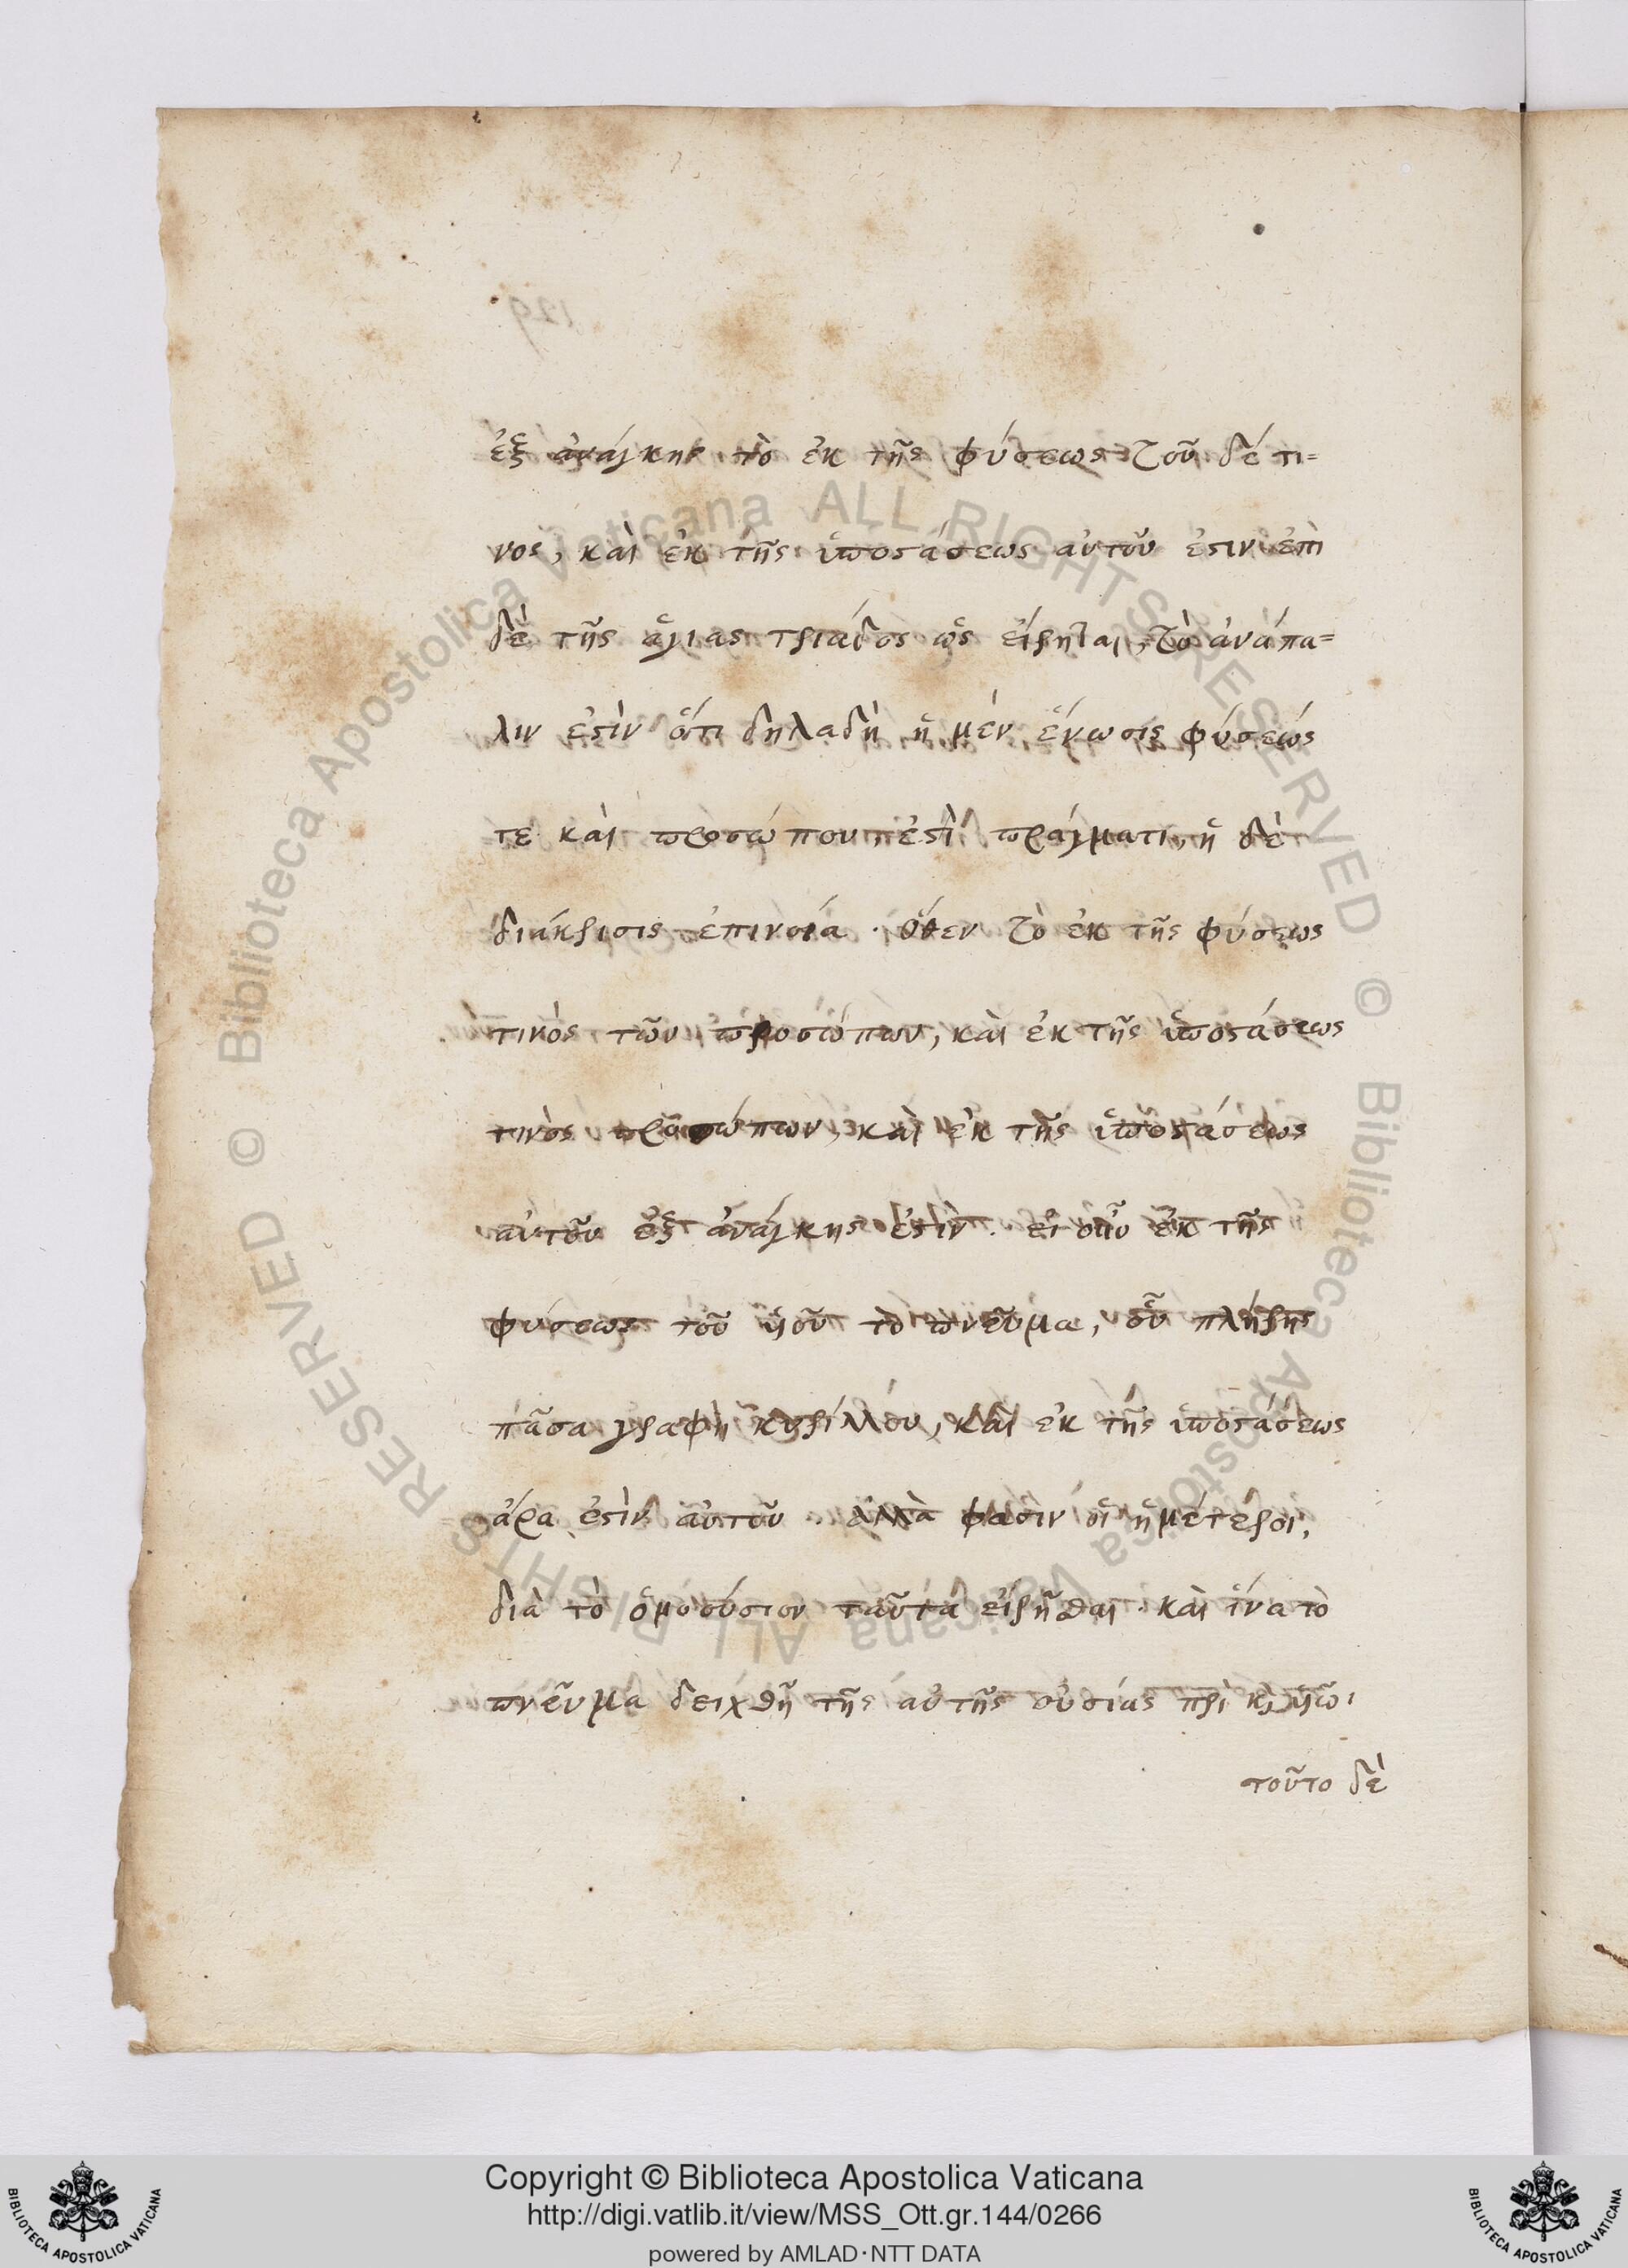 ἐξ ἀνάγκης τὸ ἐκ τῆς φύσεως τοῦ δέ τι=
νος, καὶ ἐκ τῆς ὑποστάσεως αὐτοῦ ἐστιν ἐπὶ
δὲ τῆς ἁγιας τριάδος ὡς εἴρηται, τὸ ἀνάπα=
λιν ἐστὶν ὅτι δηλαδὴ ἡ μέν ἕνωσις φύσεώς
τε καὶ προσώπου ἐστὶ πράγματι, ἡ δὲ
διάκρισις ἐπινοία · ὅθεν τὸ ἐκ τῆς φύσεως
τινὸς τῶν προσώπων, καὶ ἐκ τῆς ὑποστάσεως
τινὸς προσώπων, καὶ ἐκ τῆς ὑποστάσεως
αὐτοῦ ἐξ ἀνάγκης ἐστὶν · εἰ οὖν ἐκ τῆς
φύσεως τοῦ ὑοῦ τὸ πνεῦμα, οὗ πλήρης
πᾶσα γραφὴ κυρίλλου, καὶ ἐκ τῆς ὑποστάσεως
ἄρα ἐστὶν αὐτοῦ · ἀλλὰ φασὶν οἱ ἡμέτεροι,
διὰ τὸ ὁμοούσιον ταῦτα εἰρῆσθαι · καὶ ἵνα τὸ
πνεῦμα δειχθῆ τῆς αὐτῆς οὐσίας πρὶ κ ὑῶι
τοῦτο δὲ
129
© Biblioteca Apostolica Vaticana ALL RIGHTS RESERVED
© Biblioteca Apostolica Vaticana ALL RIGHTS RESERVED
BIBLIOTECA APOSTOLICA VATICANA
Copyright © Biblioteca Apostolica Vaticana
http://digi.vatlib.it/view/MSS_Ott.gr.144/0266
powered by AMLAD·NTT DATA
BIBLIOTECA APOSTOLICA VATICANA